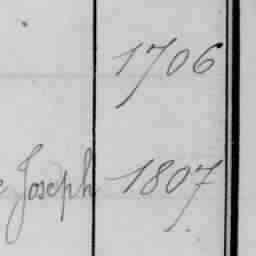 1706
e Joseph 1807